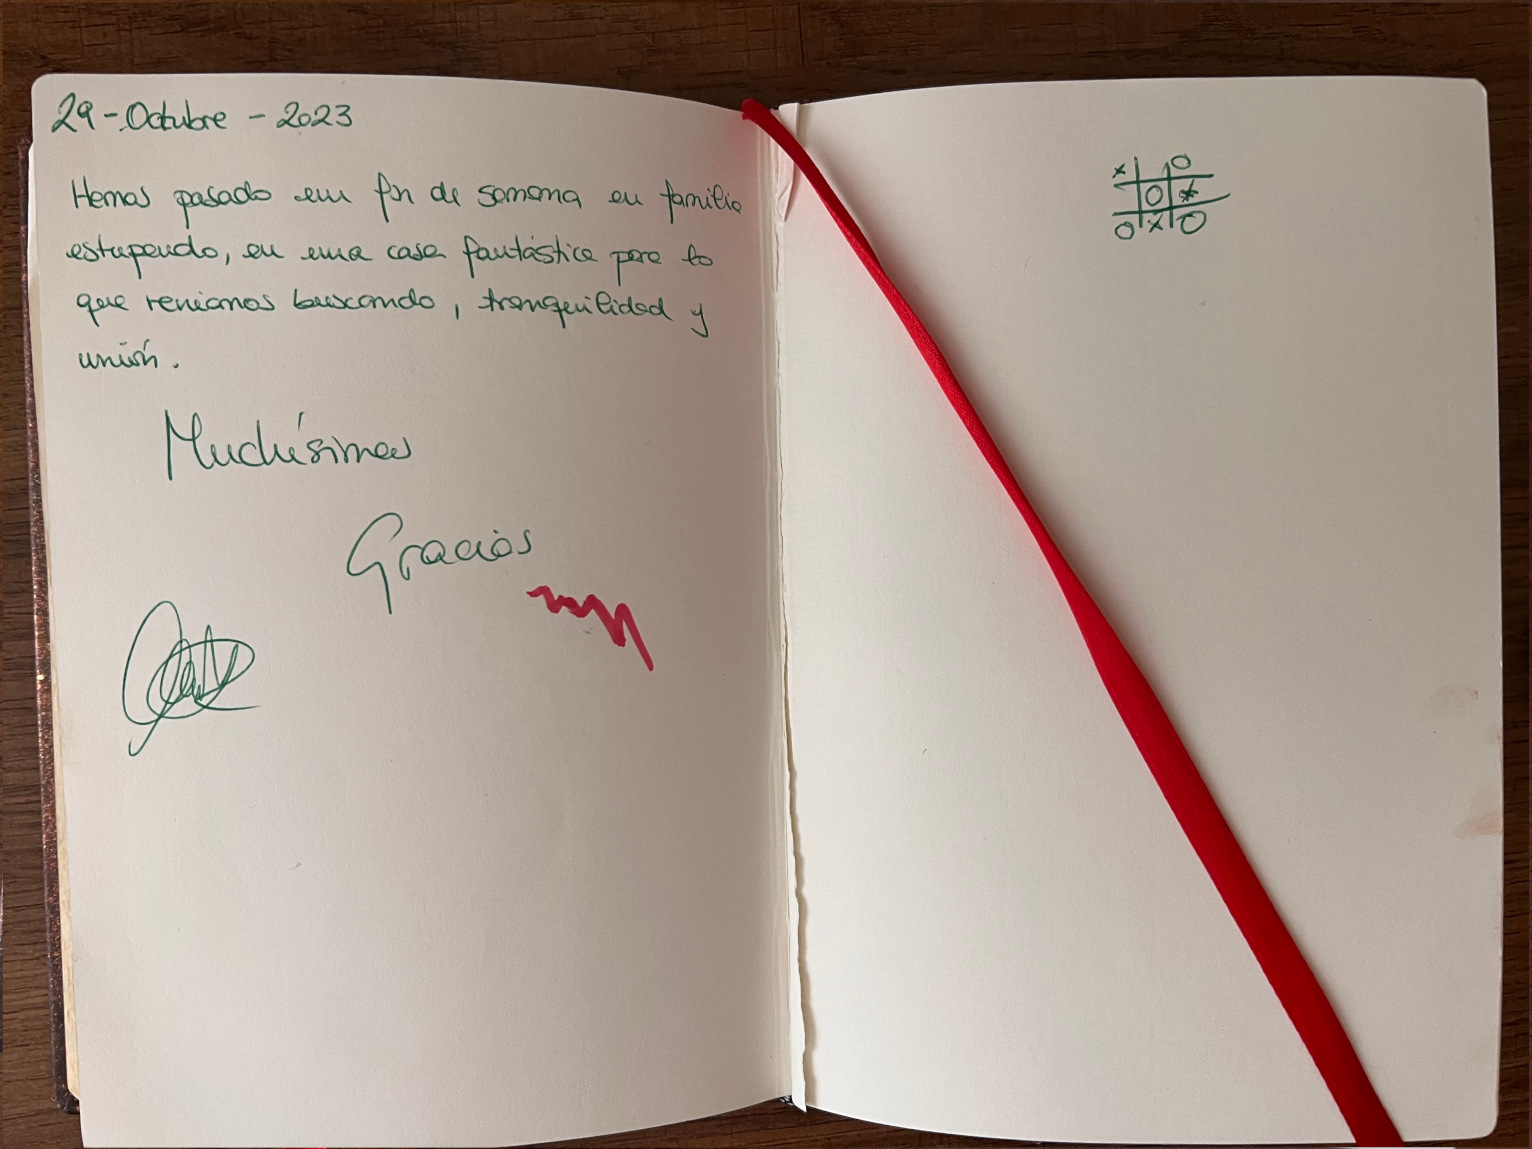 29-Octubre - 2023
Hemos pasado un fin de semana en familia
estupendo, en una casa fantástica para lo
que veniamos buscando, tranquilidad y
unión.
Muchísimas
Gracias
x O
O x
O x O